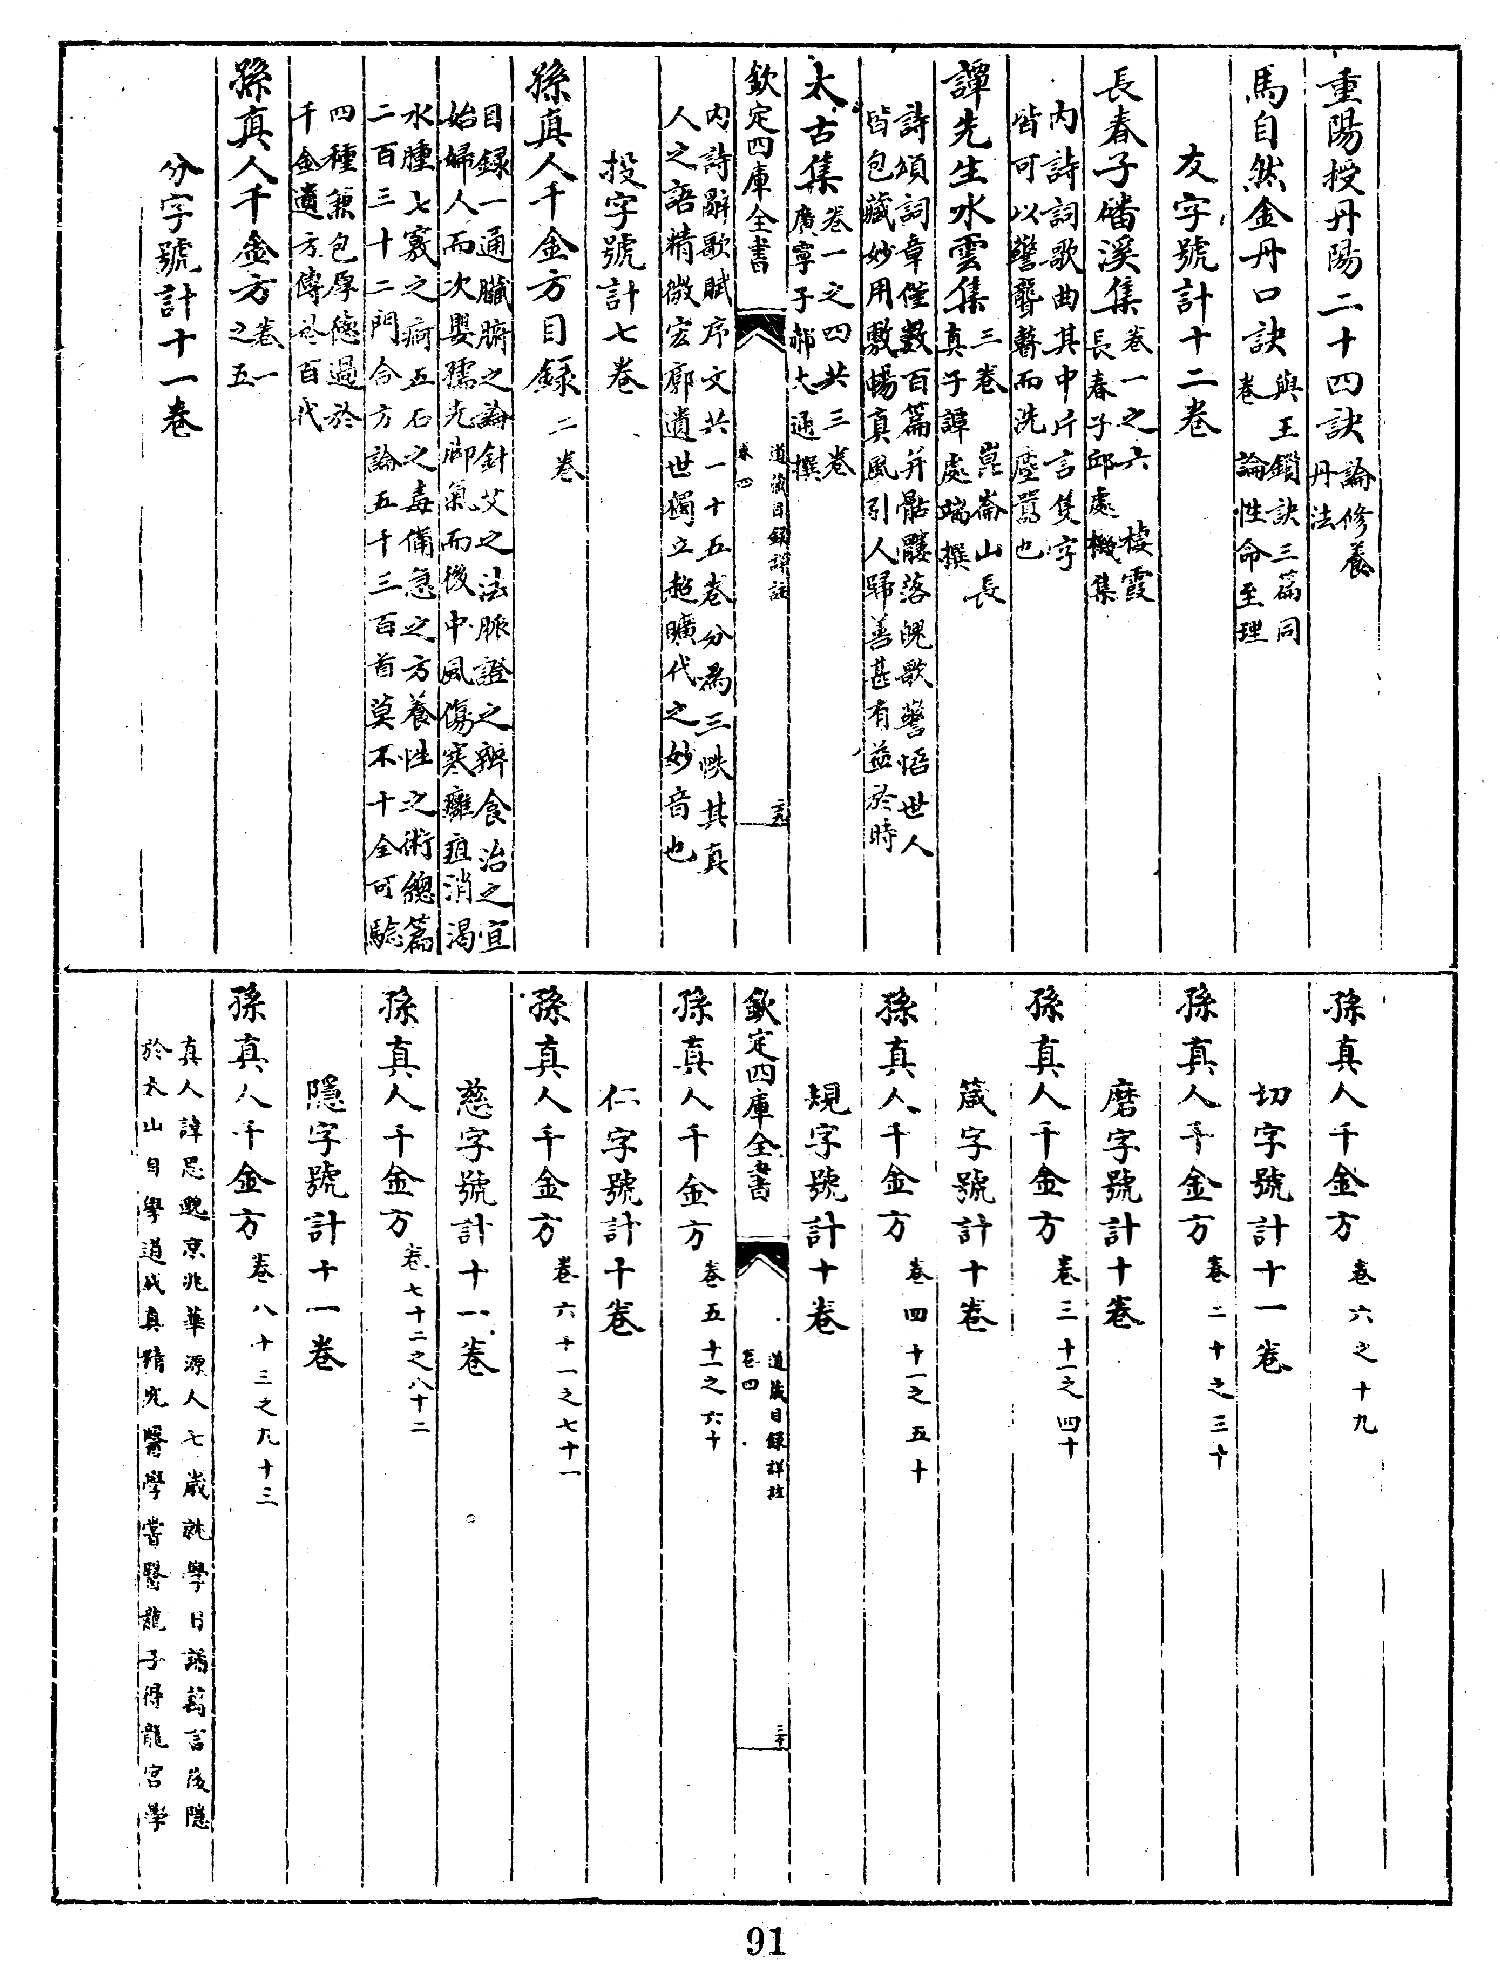 重陽授丹陽二十四訣論修養丹法
馬自然金丹口訣與王鎻訣三篇同卷論性命至理
友字號計十二卷
長春子磻溪集卷一之六棲霞長春子邱處機集
内詩詞歌曲其中片言隻字
皆可以警聾瞽而洗塵嚣也
譚先生水雲集三卷崑崙山長真子譚處端撰
詩頌詞章僅數百篇并骷髏落魄歌警悟世人
皆包藏妙用敷暢真風引人歸善甚有益於時
太古集卷一之四共三卷廣寧子郝大通撰
欽定四庫全書
道藏目録詳註
卷四
二九
内詩辭歌賦序文共一十五卷分為三帙其真
人之語精微宏廓遺世獨立超曠代之妙音也
投字號計七卷
孫真人千金方目録二卷
目録一通臟腑之論針艾之法脈證之辨食治之宜
始婦人而次嬰孺先脚氣而後中風傷寒癰疽消渴
水腫七竅之疴五石之毒備急之方養性之術總篇
二百三十二門合方論五千三百首莫不十全可驗
四種兼包厚德過於
千金遺方傳於百代
孫真人千金方卷一之五
分字號計十一卷
孫真人千金方卷六之十九
切字號計十一卷
孫真人千金方卷二十之三十
磨字號計十卷
孫真人千金方卷三十一之四十
箴字號計十卷
孫真人千金方卷四十一之五十
規字號計十卷
欽定四庫全書
道藏目録詳註
卷四
三十
孫真人千金方卷五十一之六十
仁字號計十卷
孫真人千金方卷六十一之七十一
慈字號計十一卷
孫真人千金方卷七十二之八十二
隱字號計十一卷
孫真人千金方卷八十三之九十三
真人諱思邈京兆華源人七歲就學日誦萬言後隱
於太山自學道成真精究醫學嘗醫龍子得龍宮學
91